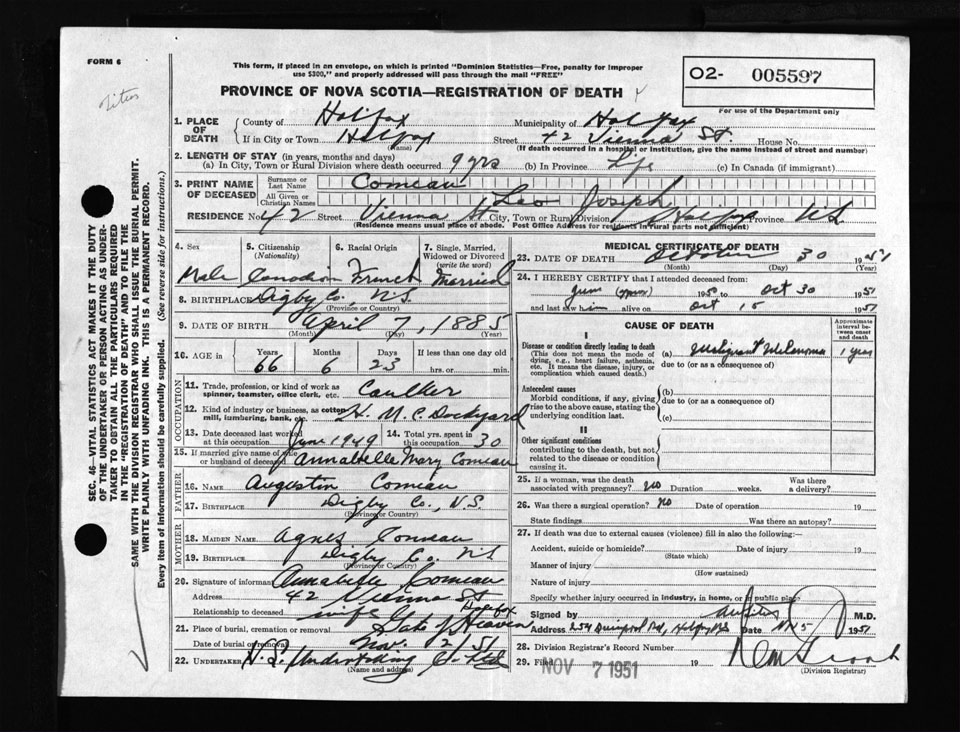 FORM 6
This form, if placed in an envelope, on which is printed "Dominion Statistics—Free, penalty for improper
use $300," and properly addressed will pass through the mail "FREE"
O2- 005597
For use of the Department only
PROVINCE OF NOVA SCOTIA—REGISTRATION OF DEATH
1. PLACE OF DEATH
County of Halifax Municipality of Halifax
If in City or Town Halifax Street 42 Vienna St. House No.
(Name) (If death occurred in a hospital or institution, give the name instead of street and number)
2. LENGTH OF STAY (in years, months and days)
(a) In City, Town or Rural Division where death occurred 9 yrs (b) In Province Life (c) In Canada (if immigrant)
3. PRINT NAME OF DECEASED
Surname or Last Name Comeau
All Given or Christian Names Leo Joseph
RESIDENCE No. 42 Street Vienna St City, Town or Rural Division Halifax Province N.S.
(Residence means usual place of abode. Post Office Address for residents in rural parts not sufficient)
4. Sex
Male
5. Citizenship (Nationality)
Canadian
6. Racial Origin
French
7. Single, Married, Widowed or Divorced (write the word)
Married
8. BIRTHPLACE Digby Co., N.S.
(Province or Country)
9. DATE OF BIRTH April 7, 1885
(Month) (Day) (Year)
10. AGE in Years Months Days If less than one day old
66 6 23 hrs. or min.
OCCUPATION
11. Trade, profession, or kind of work as
spinner, teamster, office clerk, etc. Caulker
12. Kind of industry or business, as cotton
mill, lumbering, bank, etc. H. M. C. Dockyard
13. Date deceased last worked at this occupation June 1949
14. Total yrs. spent in this occupation 30
15. If married give name of wife
or husband of deceased Annabelle Mary Comeau
FATHER
16. NAME Augustin Comeau
17. BIRTHPLACE Digby Co., N.S.
(Province or Country)
MOTHER
18. MAIDEN NAME Agnes Comeau
19. BIRTHPLACE Digby Co. N.S
(Province or Country)
20. Signature of informant Annabelle Comeau
Address 42 Vienna St Halifax
Relationship to deceased wife
21. Place of burial, cremation or removal Gate of Heaven
Date of burial or removal Nov. 2 51
22. UNDERTAKER N.S. Undertaking Co. Ltd
(Name and address)
MEDICAL CERTIFICATE OF DEATH
23. DATE OF DEATH October 30 1951
(Month) (Day) (Year)
24. I HEREBY CERTIFY that I attended deceased from:
June 1950 to Oct 30 1951
and last saw him alive on Oct 15 1951
CAUSE OF DEATH
Approximate interval between onset and death
I
Disease or condition directly leading to death
(This does not mean the mode of
dying, e.g., heart failure, asthenia,
etc. It means the disease, injury, or
complication which caused death.)
(a) Malignant Melanoma 1 year
due to (or as a consequence of)
Antecedent causes
Morbid conditions, if any, giving
rise to the above cause, stating the
underlying condition last.
(b)
due to (or as a consequence of)
(c)
II
Other significant conditions
contributing to the death, but not
related to the disease or condition
causing it.
25. If a woman, was the death
associated with pregnancy? No Duration weeks. Was there a delivery?
26. Was there a surgical operation? No Date of operation 19
State findings Was there an autopsy?
27. If death was due to external causes (violence) fill in also the following:—
Accident, suicide or homicide? Date of injury 19
(State which)
Manner of injury
(How sustained)
Nature of injury
Specify whether injury occurred in industry, in home, or in public place
Signed by M.D.
Address 254 Quinpool Rd, Halifax NS Date Nov 5 1951
28. Division Registrar's Record Number
29. Filed NOV 7 1951 19
(Division Registrar)
SEC. 46—VITAL STATISTICS ACT MAKES IT THE DUTY
OF THE UNDERTAKER OR PERSON ACTING AS UNDER-
TAKER TO OBTAIN ALL THE PARTICULARS REQUIRED
IN THE "REGISTRATION OF DEATH" AND TO FILE THE
SAME WITH THE DIVISION REGISTRAR WHO SHALL ISSUE THE BURIAL PERMIT.
WRITE PLAINLY WITH UNFADING INK. THIS IS A PERMANENT RECORD.
Every item of information should be carefully supplied. (See reverse side for instructions.)